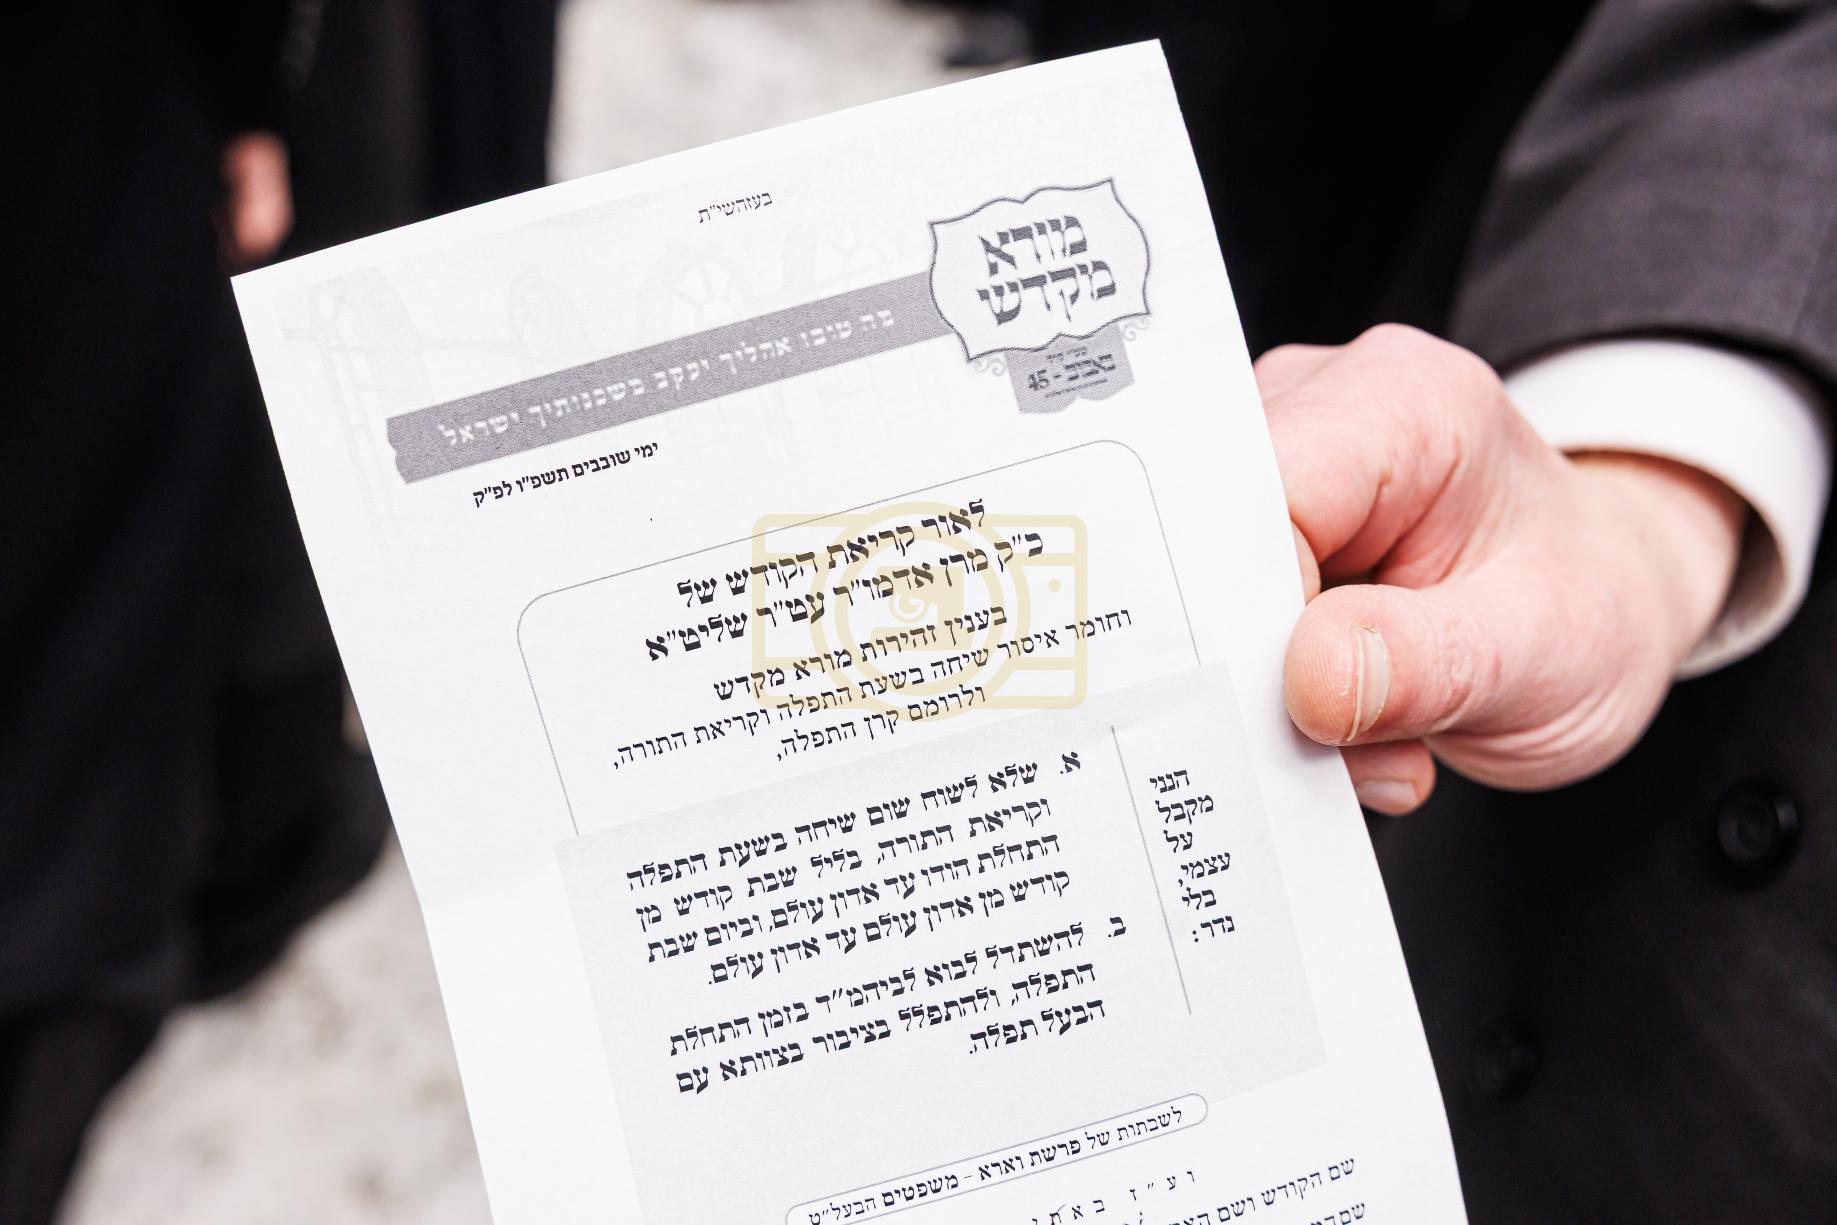 בעזהשי"ת
מורא
מקדש
באבוב - 45
מה טובו אהליך יעקב משכנותיך ישראל
ימי שובבים תשפ"ו לפ"ק
לאור קריאת הקודש של
כ"ק מרן אדמו"ר עט"ר שליט"א
בענין זהירות מורא מקדש
וחומר איסור שיחה בשעת התפלה וקריאת התורה,
ולרומם קרן התפלה,
הנני
מקבל
על
עצמי,
בלי
נדר:
א. שלא לשוח שום שיחה בשעת התפלה
וקריאת התורה, בליל שבת קודש מן
התחלת הודו עד אדון עולם, וביום שבת
קודש מן אדון עולם עד אדון עולם.
ב. להשתדל לבוא לביהמ"ד בזמן התחלת
התפלה, ולהתפלל בציבור בצוותא עם
הבעל תפלה.
לשבתות של פרשת וארא - משפטים הבעל"ט
ועז"ז באתי
שם הקודש ושם